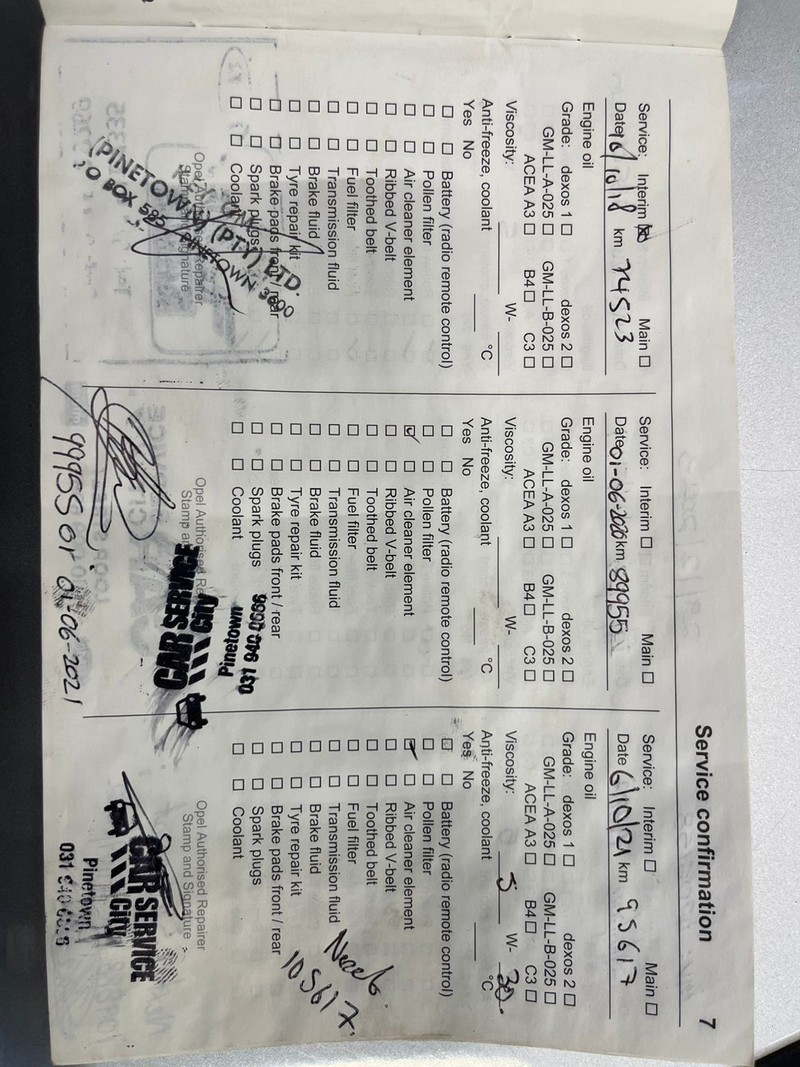 Service confirmation 7
Service: Interim ☒ Main ☐
Date 6/10/18 km 74523
Engine oil
Grade: dexos 1 ☐ dexos 2 ☐
GM-LL-A-025 ☐ GM-LL-B-025 ☐
ACEA A3 ☐ B4 ☐ C3 ☐
Viscosity: W-
Anti-freeze, coolant °C
Yes No
☐ ☐ Battery (radio remote control)
☐ ☐ Pollen filter
☐ ☐ Air cleaner element
☐ ☐ Ribbed V-belt
☐ ☐ Toothed belt
☐ ☐ Fuel filter
☐ ☐ Transmission fluid
☐ ☐ Brake fluid
☐ ☐ Tyre repair kit
☐ ☐ Brake pads front / rear
☐ ☐ Spark plugs
☐ ☐ Coolant
Opel Authorised Repairer
Stamp and Signature
(PINETOWN) (PTY) LTD.
P O BOX 585 PINETOWN 3600
Service: Interim ☐ Main ☐
Date 01-06-2020 km 89955
Engine oil
Grade: dexos 1 ☐ dexos 2 ☐
GM-LL-A-025 ☐ GM-LL-B-025 ☐
ACEA A3 ☐ B4 ☐ C3 ☐
Viscosity: W-
Anti-freeze, coolant °C
Yes No
☐ ☐ Battery (radio remote control)
☐ ☐ Pollen filter
☑ ☐ Air cleaner element
☐ ☐ Ribbed V-belt
☐ ☐ Toothed belt
☐ ☐ Fuel filter
☐ ☐ Transmission fluid
☐ ☐ Brake fluid
☐ ☐ Tyre repair kit
☐ ☐ Brake pads front / rear
☐ ☐ Spark plugs
☐ ☐ Coolant
Opel Authorised Re
Stamp a
031 940 6666
Pinetown
CAR SERVICE
CITY
99955 or 01-06-2021
Service: Interim ☐ Main ☐
Date 6/10/21 km 95617
Engine oil
Grade: dexos 1 ☐ dexos 2 ☐
GM-LL-A-025 ☐ GM-LL-B-025 ☐
ACEA A3 ☐ B4 ☐ C3 ☐
Viscosity: 5 W- 30
Anti-freeze, coolant °C
Yes No
☐ ☐ Battery (radio remote control)
☐ ☐ Pollen filter
☑ ☐ Air cleaner element
☐ ☐ Ribbed V-belt
☐ ☐ Toothed belt
☐ ☐ Fuel filter
☐ ☐ Transmission fluid
☐ ☐ Brake fluid
☐ ☐ Tyre repair kit
☐ ☐ Brake pads front / rear
☐ ☐ Spark plugs
☐ ☐ Coolant
105617
Opel Authorised Repairer
Stamp and Signature
CAR SERVICE
City
Pinetown